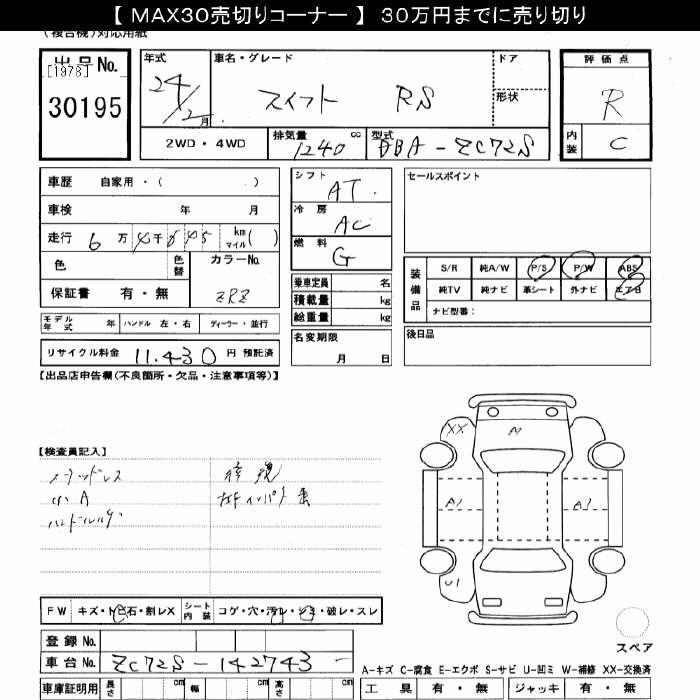 【 MAX30売切りコーナー 】 30万円までに売り切り
(複合機)対応用紙
出品No.
[1978]
30195
年式
24/2月
車名・グレード
スイフト RS
ドア
形状
評価点
R
内装
C
2WD・4WD
排気量
1240 cc
型式
DBA-ZC72S
車歴 自家用・( . )
車検 年 月
走行 6万 km マイル( )
色
色替
カラーNo.
ZRZ
保証書 有・無
シフト
AT
冷房
AC
燃料
G
セールスポイント
乗車定員 名
積載量 kg
総重量 kg
装備品
S/R 純A/W P/S P/W ABS
純TV 純ナビ 革シート 外ナビ エアB
ナビ型番:
モデル年式 年
ハンドル 左・右
ディーラー・並行
名変期限
月 日
後日品
リサイクル料金 11.430 円 預託済
【出品店申告欄(不良箇所・欠品・注意事項等)】
【検査員記入】
小A
XX
A1
A1
A1
U1
FW キズ・トビ石・割レX
シート内装 コゲ・穴・汚レ・シミ・破レ・スレ
スペア
登録No.
車台No. ZC72S-142743-
車庫証明用 長さ cm 幅 cm 高さ cm
A-キズ C-腐食 E-エクボ S-サビ U-凹ミ W-補修 XX-交換済
工具 有・無 ジャッキ 有・無